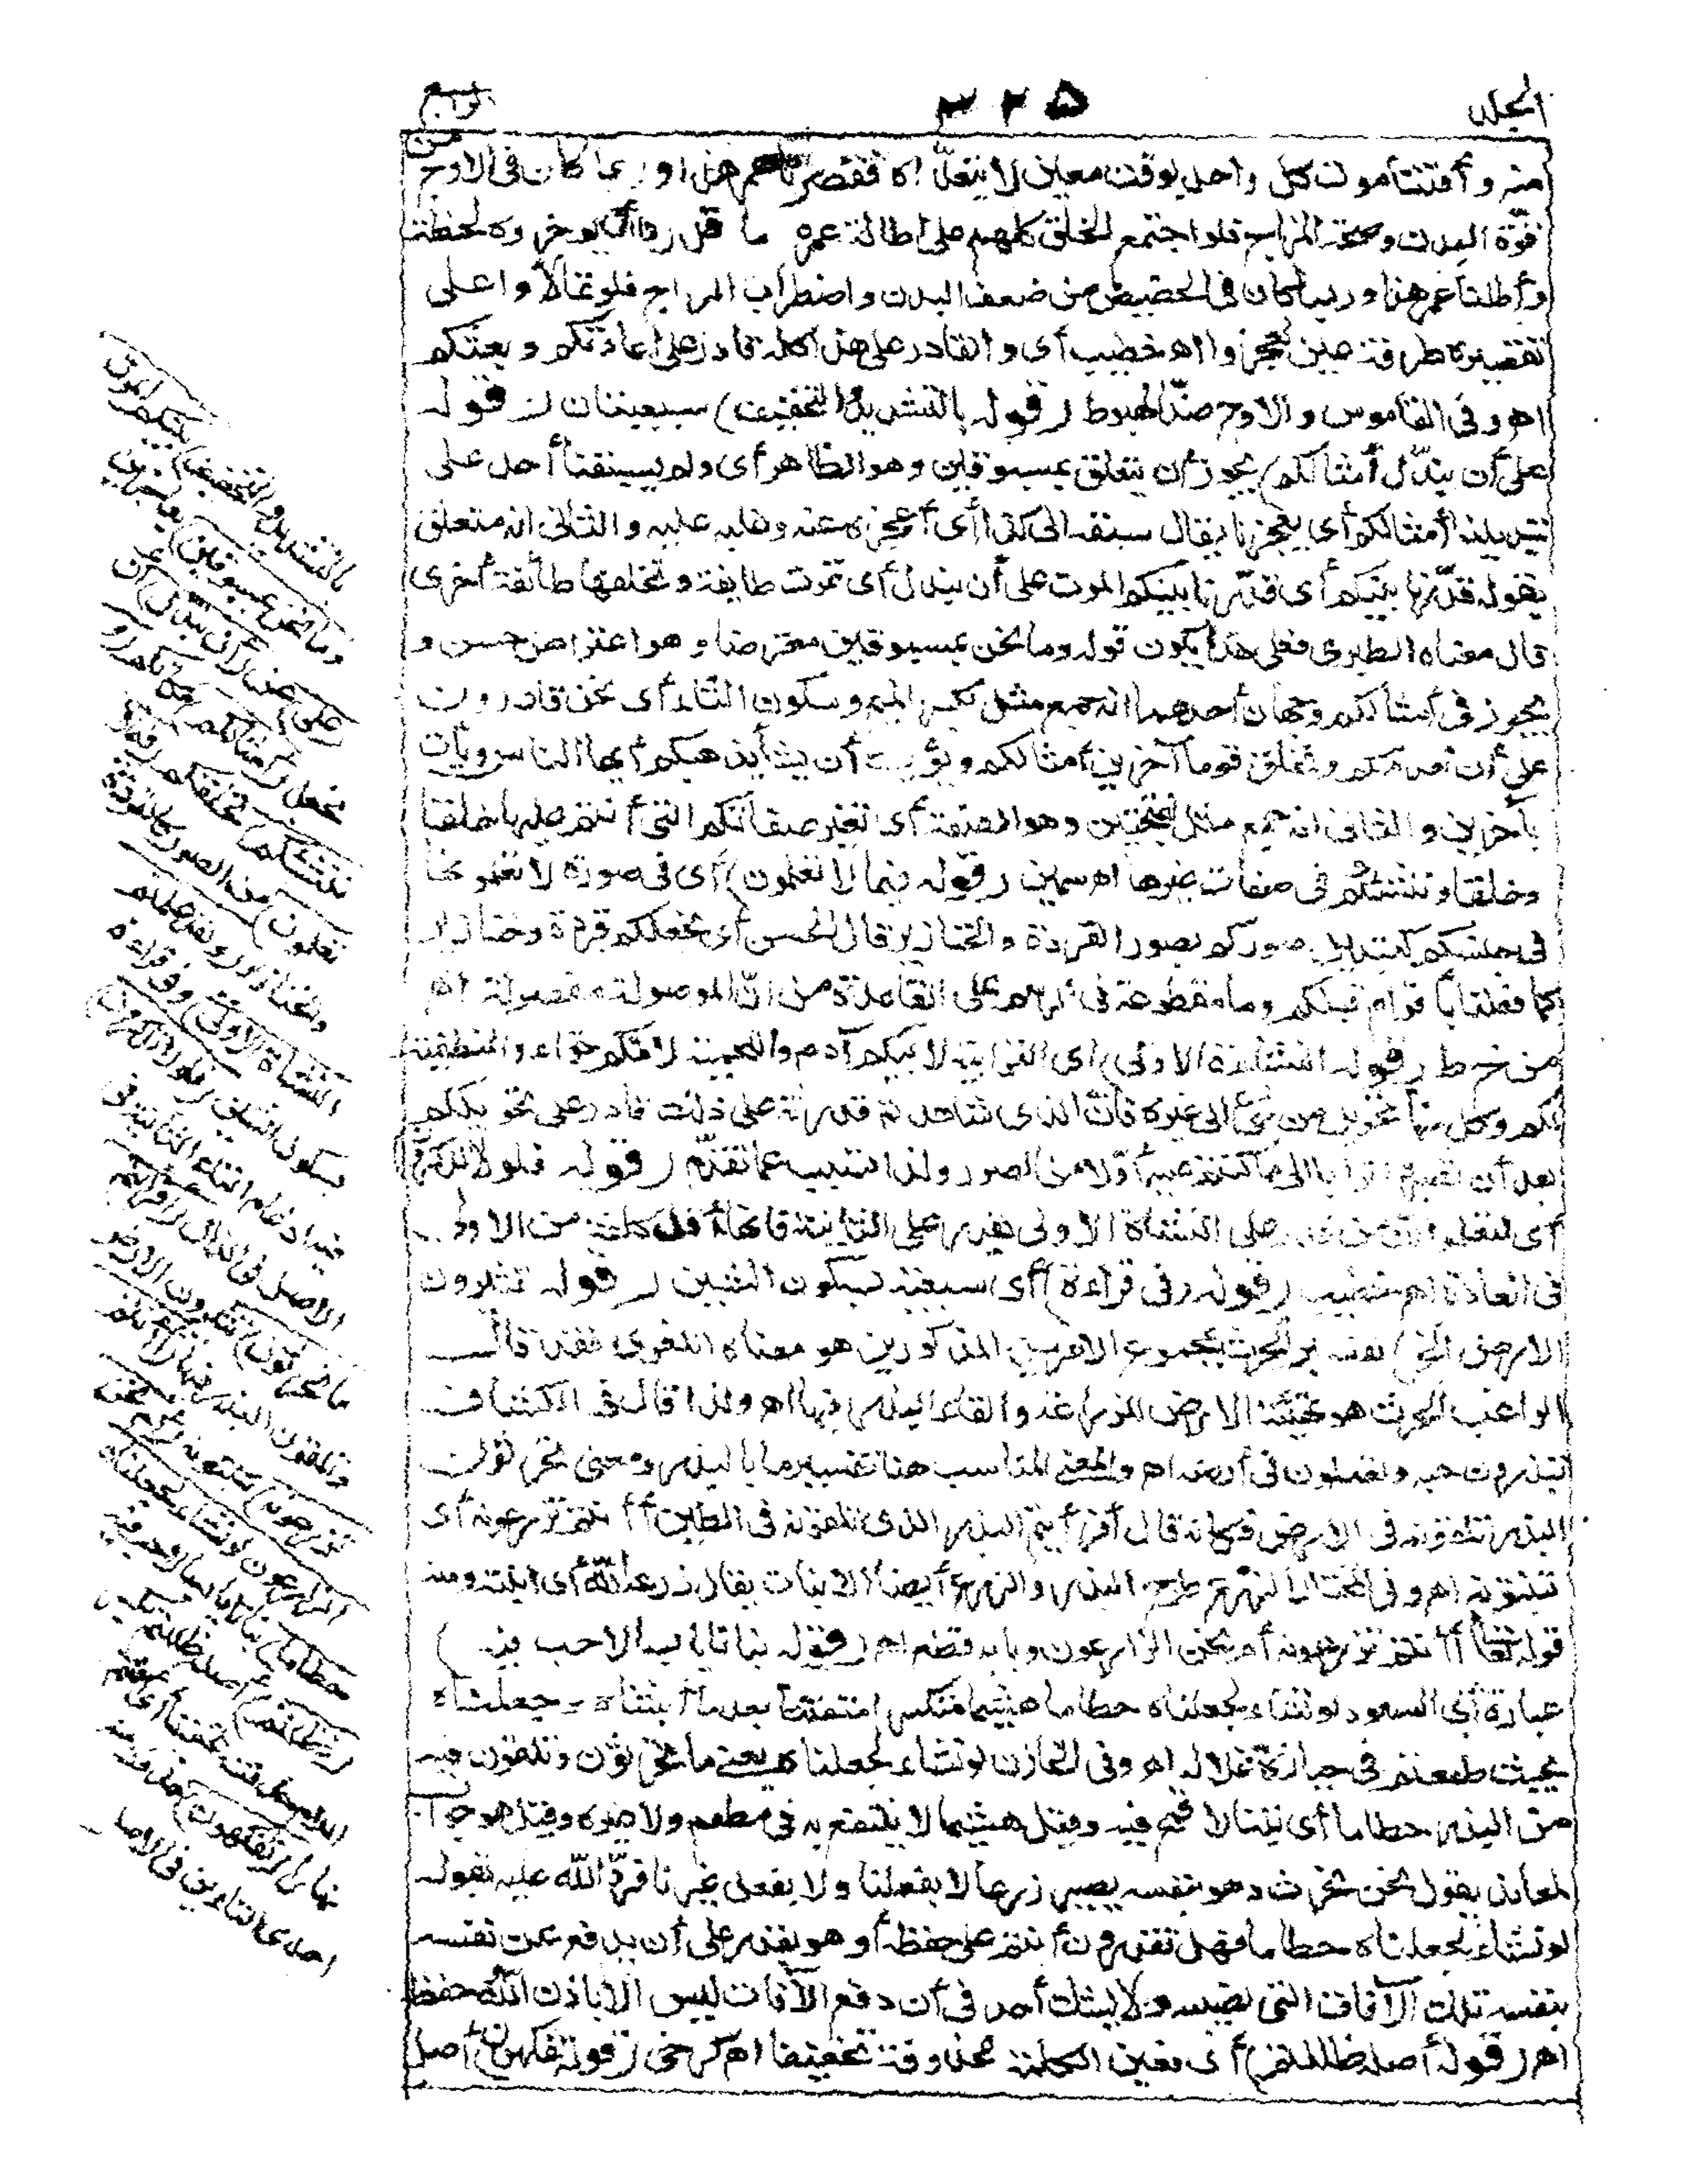 المجلد ٣٢٥ الرابع
منه وأقتنا موت كل واحد بوقت معين لا يتعداه فقصرنا عمر هذا وربما كان في الاوج من
قوة البدن وصحة المزاج فلو اجتمع الخلق كلهم على اطالة عمره ما قدروا أن يؤخروه لحظة
وأطلنا عمر هذا وربما كان في الحضيض من ضعف البدن واضطراب المزاج فلو تمالأوا على
تقصيره طرفة عين لعجزوا اه خطيب أى والقادر على هذا كله قادر على اعادتكم وبعثكم
اه وفى القاموس والاوج ضد الهبوط (قوله بالتشديد والتخفيف) سبعيتان (قوله
على أن نبدل أمثالكم) يجوز أن يتعلق بمسبوقين وهو الظاهر أى ولم يسبقنا أحد على
تبديلنا أمثالكم أى يعجزنا يقال سبقه الى كذا أى أعجزه عنه وغلبه عليه والثانى انه متعلق
بقوله قدرنا بينكم أى قدرنا بينكم الموت على أن نبدل أى تموت طائفة وتخلفها طائفة أخرى
قال معناه الطبرى فعلى هذا يكون قوله وما نحن بمسبوقين معترضا وهو اعتراض حسن و
يجوز فى أمثالكم وجهان أحدهما انه جمع مثل بكسر الميم وسكون الثاء أى نحن قادرون
على أن نعدمكم ونخلق قوما آخرين أمثالكم ويؤيده أن يشأ يذهبكم أيها الناس ويأت
بآخرين والثانى انه جمع مثل بفتحتين وهو الصفة أى نغير صفاتكم التى أنتم عليها خلقا
وخلقا وننشئكم فى صفات غيرها اه سمين (قوله فيما لا تعلمون) أى فى صورة لا تعلمونها
فى جنسكم كتبديل صوركم بصور القردة والخنازير قال الحسن أى نجعلكم قردة وخنازير
كما فعلنا بأقوام قبلكم وما مقطوعة فى الرسم على القاعدة من ان الموصولة مفصولة اه
من خط (قوله النشأة الاولى) أى الترابية لابيكم آدم واللحمية لامكم حواء والنطفية
لكم وكل منها تحويل من شئ الى غيره فان الذى شاهدتم قدرته على ذلك قادر على تحويلكم
بعد أن تصيروا ترابا الى ما كنتم عليه أولا من الصور ولذا تسبب عما تقدم (قوله فلولا تذكرون)
أى تعلمون أن من قدر على النشأة الاولى يقدر على الثانية فانها أقل كلفة من الاولى
فى العادة اه خطيب (قوله وفى قراءة) أى سبعية بسكون الشين (قوله تثيرون
الارض الخ) تفسير الحرث بمجموع الامرين المذكورين هو معناه اللغوى فقد قال
الراغب الحرث هو تهيئة الارض للزراعة والقاء البذر فيها اه ولذا قال فى الكشاف
تبذرون حبه وتعملون فى أرضه اه والمعنى المناسب هنا تفسير ما بالبذر ومعنى تحرثون
البذر تلقونه فى الارض فكانه قال أفرأيتم البذر الذى تلقونه فى الطين أأنتم تزرعونه أى
تنبتونه اه وفى المختار الزرع طرح البذر والزرع أيضا الانبات يقال زرعه الله أى انبته ومنه
قوله تعالى أأنتم تزرعونه أم نحن الزارعون وبابه قطع اه (قوله نباتا يابسا لاحب فيه)
عبارة أبى السعود لو نشاء لجعلناه حطاما هشيما متكسرا متفتتا بعدما أنبتناه وجعلناه
بحيث طمعتم فى حيازة غلاله اه وفى الخازن لو نشاء لجعلناه يعنى ما تحرثون وتلقون فيه
من البذر حطاما أى تبنا لا قمح فيه وقيل هشيما لا ينتفع به فى مطعم ولا غيره وقيل هو جواب
لمعاند يقول نحن نحرث وهو بنفسه يصير زرعا لا بفعلنا ولا بفعل غيرنا فرد الله عليه بقوله
لو نشاء لجعلناه حطاما فهل تقدرون أنتم على حفظه أو هو يقدر على أن يدفع عن نفسه
بنفسه تلك الآفات التى تصيبه ولا يشك أحد فى أن دفع الآفات ليس الا باذن الله وحفظه
اه (قوله أصله ظللتم) أى بعين الكلمة محذوفة تخفيفا اه كرخى (قوله تفكهون) أصله
بالتشديد والتخفيف بينكم الموت
وما نحن بمسبوقين بعاجزين
على عن أن نبدل أن
نجعل أمثالكم مكانكم و
ننشئكم نخلقكم فيما لا
تعلمون من الصور كالقردة
والخنازير ولقد علمتم
النشأة الاولى وفى قراءة
بسكون الشين فلولا تذكرون
فيه ادغام التاء الثانية فى
الاصل فى الذال أفرأيتم
ما تحرثون تثيرون الارض
وتلقون البذر فيها أأنتم
تزرعونه تنبتونه أم نحن
الزارعون لو نشاء لجعلناه
حطاما نباتا يابسا لا حب فيه
فظلتم أصله ظللتم بكسر
اللام حذفت تخفيفا أى أقمتم
نهارا تفكهون حذف منه
احدى التاءين فى الاصل